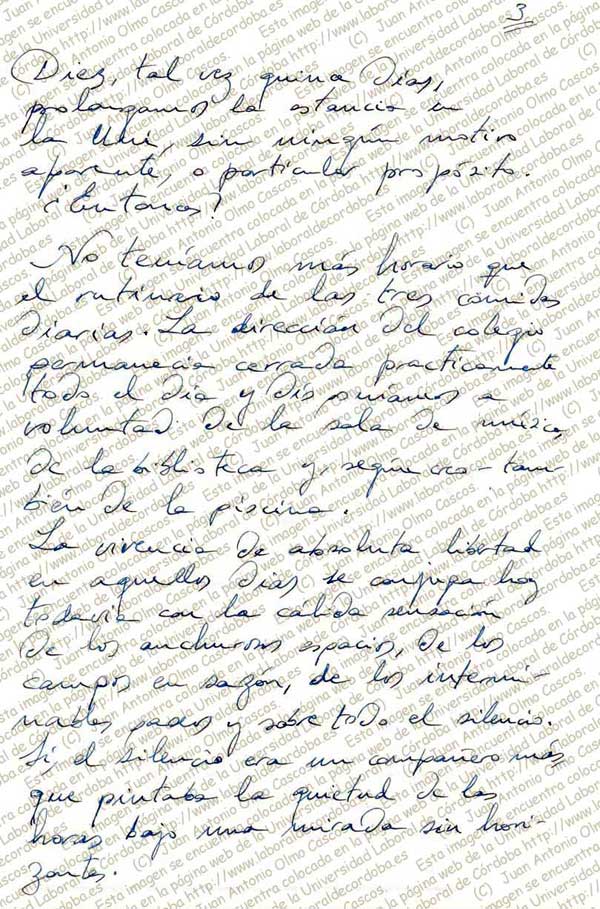 3
Diez, tal vez quince días,
prolongamos la estancia en
la Uni, sin ningún motivo
aparente, o particular propósito.
No teníamos más horario que
el rutinario de las tres comidas
diarias. La dirección del colegio
permanecía cerrada practicamente
todo el día y disponíamos a
voluntad de la sala de música,
de la biblioteca y, según creo - tam-
bién de la piscina.
La vivencia de absoluta libertad
en aquellos días se conjuga hoy
todavía con la cálida sensación
de los anchurosos espacios, de los
campos en sazón, de los intermi-
nables paseos y sobre todo el silencio.
Si, el silencio era un compañero más,
que pintaba la quietud de las
horas bajo una mirada sin hori-
zontes.
Esta imagen se encuentra colocada en la página web de la Universidad Laboral de Córdoba http://www.laboraldecordoba.es (C) Juan Antonio Olmo Cascos.